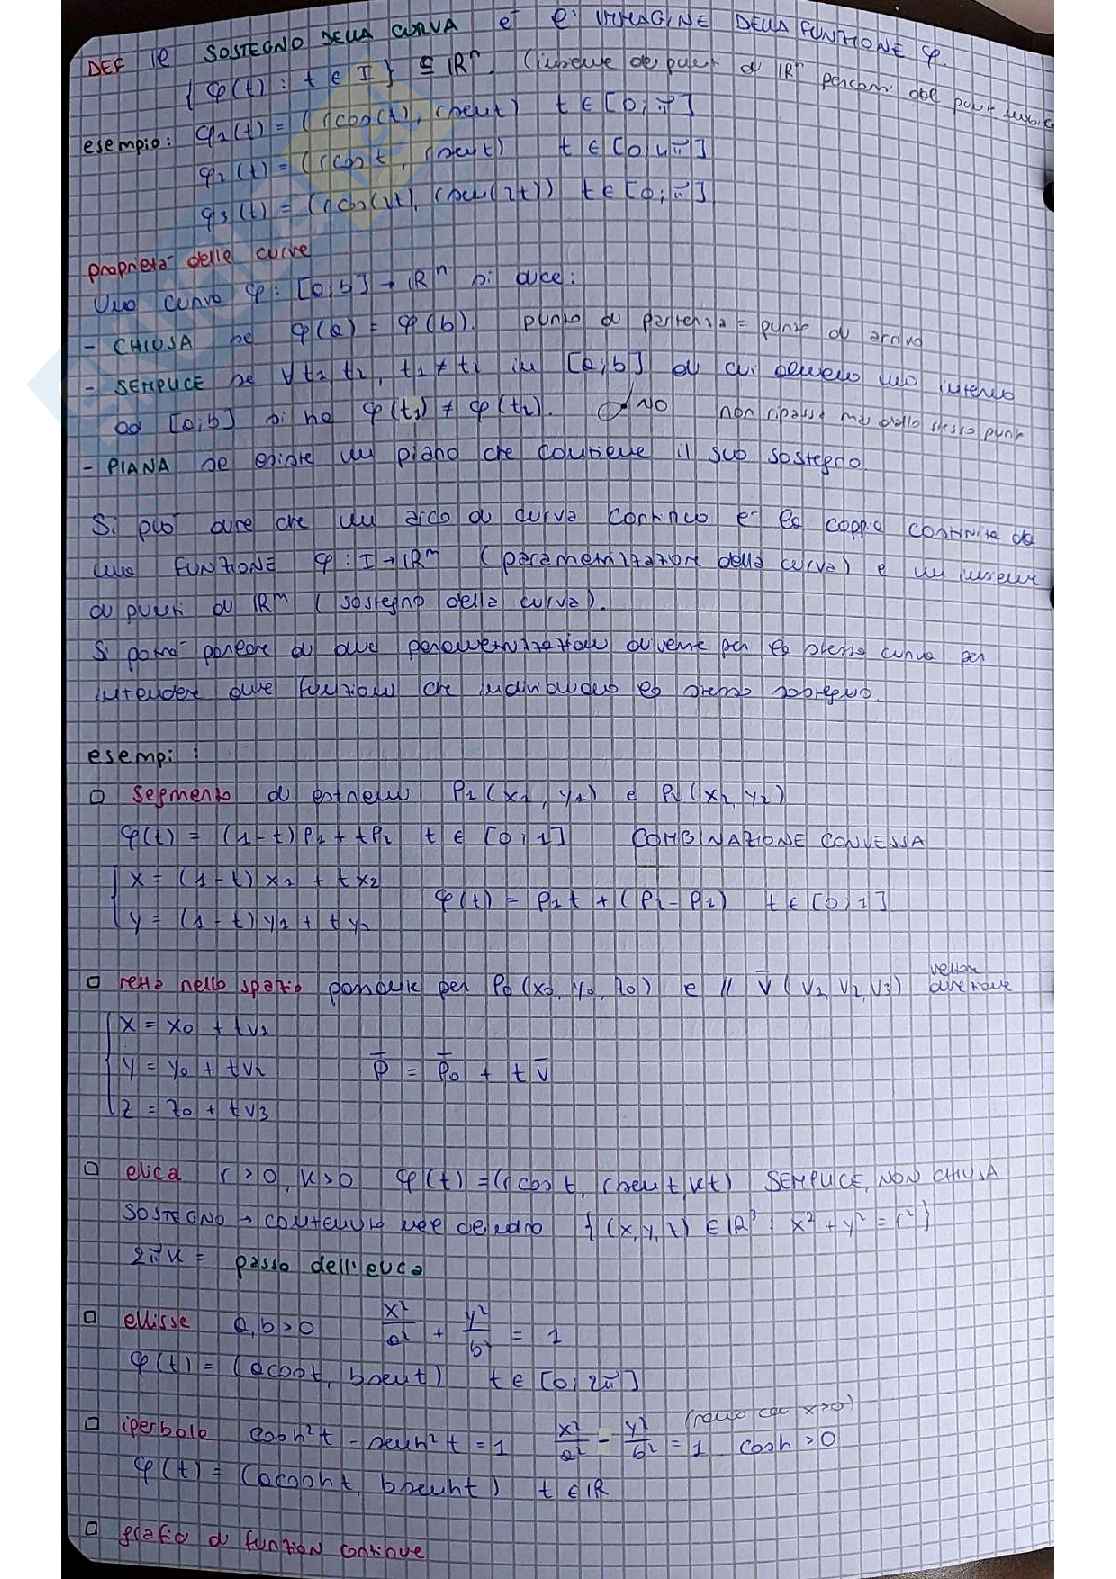 DEF Il SOSTEGNO DELLA CURVA è l'IMMAGINE DELLA FUNZIONE φ.
{φ(t) : t ∈ I} ⊆ ℝⁿ. (insieme dei punti di ℝⁿ percorsi dal
esempio: φ₁(t) = (rcos(t), rsent) t ∈ [0, π]
φ₂(t) = (rcost, rsent) t ∈ [0, 4π]
φ₃(t) = (rcos(2t), rsen(2t)) t ∈ [0; π]
proprietà delle curve
Una curva φ: [a,b] → ℝⁿ si dice:
- CHIUSA se φ(a) = φ(b). punto di partenza = punto di arrivo
- SEMPLICE se ∀ t₁ t₂, t₁ ≠ t₂ in [a,b] di cui almeno uno interno
ad [a,b] si ha φ(t₁) ≠ φ(t₂). NO non ripassa mai dallo stesso punto
- PIANA se esiste un piano che contiene il suo sostegno
Si può dire che un arco di curva continuo è la coppia costituita da
una FUNZIONE φ : I → ℝᵐ (parametrizzazione della curva) e un insieme
di punti di ℝᵐ (sostegno della curva).
Si potrà parlare di due parametrizzazioni diverse per la stessa curva per
intendere due funzioni che individuano lo stesso sostegno.
esempi :
□ segmento di estremi P₁(x₁, y₁) e P₂(x₂, y₂)
φ(t) = (1-t)P₁ + tP₂ t ∈ [0, 1] COMBINAZIONE CONVESSA
x = (1-t)x₁ + tx₂
y = (1-t)y₁ + ty₂ φ(t) = P₁t + (P₂-P₁) t ∈ [0,1]
□ retta nello spazio passante per P₀(x₀, y₀, z₀) e // v̄(v₁, v₂, v₃) vettore direzione
x = x₀ + tv₁
y = y₀ + tv₂ P̄ = P̄₀ + t v̄
z = z₀ + tv₃
□ elica r>0, k>0 φ(t) = (rcost, rsent, kt) SEMPLICE, NON CHIUSA
SOSTEGNO → contenuto nel cilindro {(x,y,z) ∈ ℝ³ : x² + y² = r²}
2πk = passo dell'elica
□ ellisse a,b>0 x²/a² + y²/b² = 1
φ(t) = (acost, bsent) t ∈ [0, 2π]
□ iperbole cosh²t - senh²t = 1 x²/a² - y²/b² = 1 (ramo con x>0) cosh >0
φ(t) = (acosht, bsenht) t ∈ ℝ
□ grafici di funzioni continue